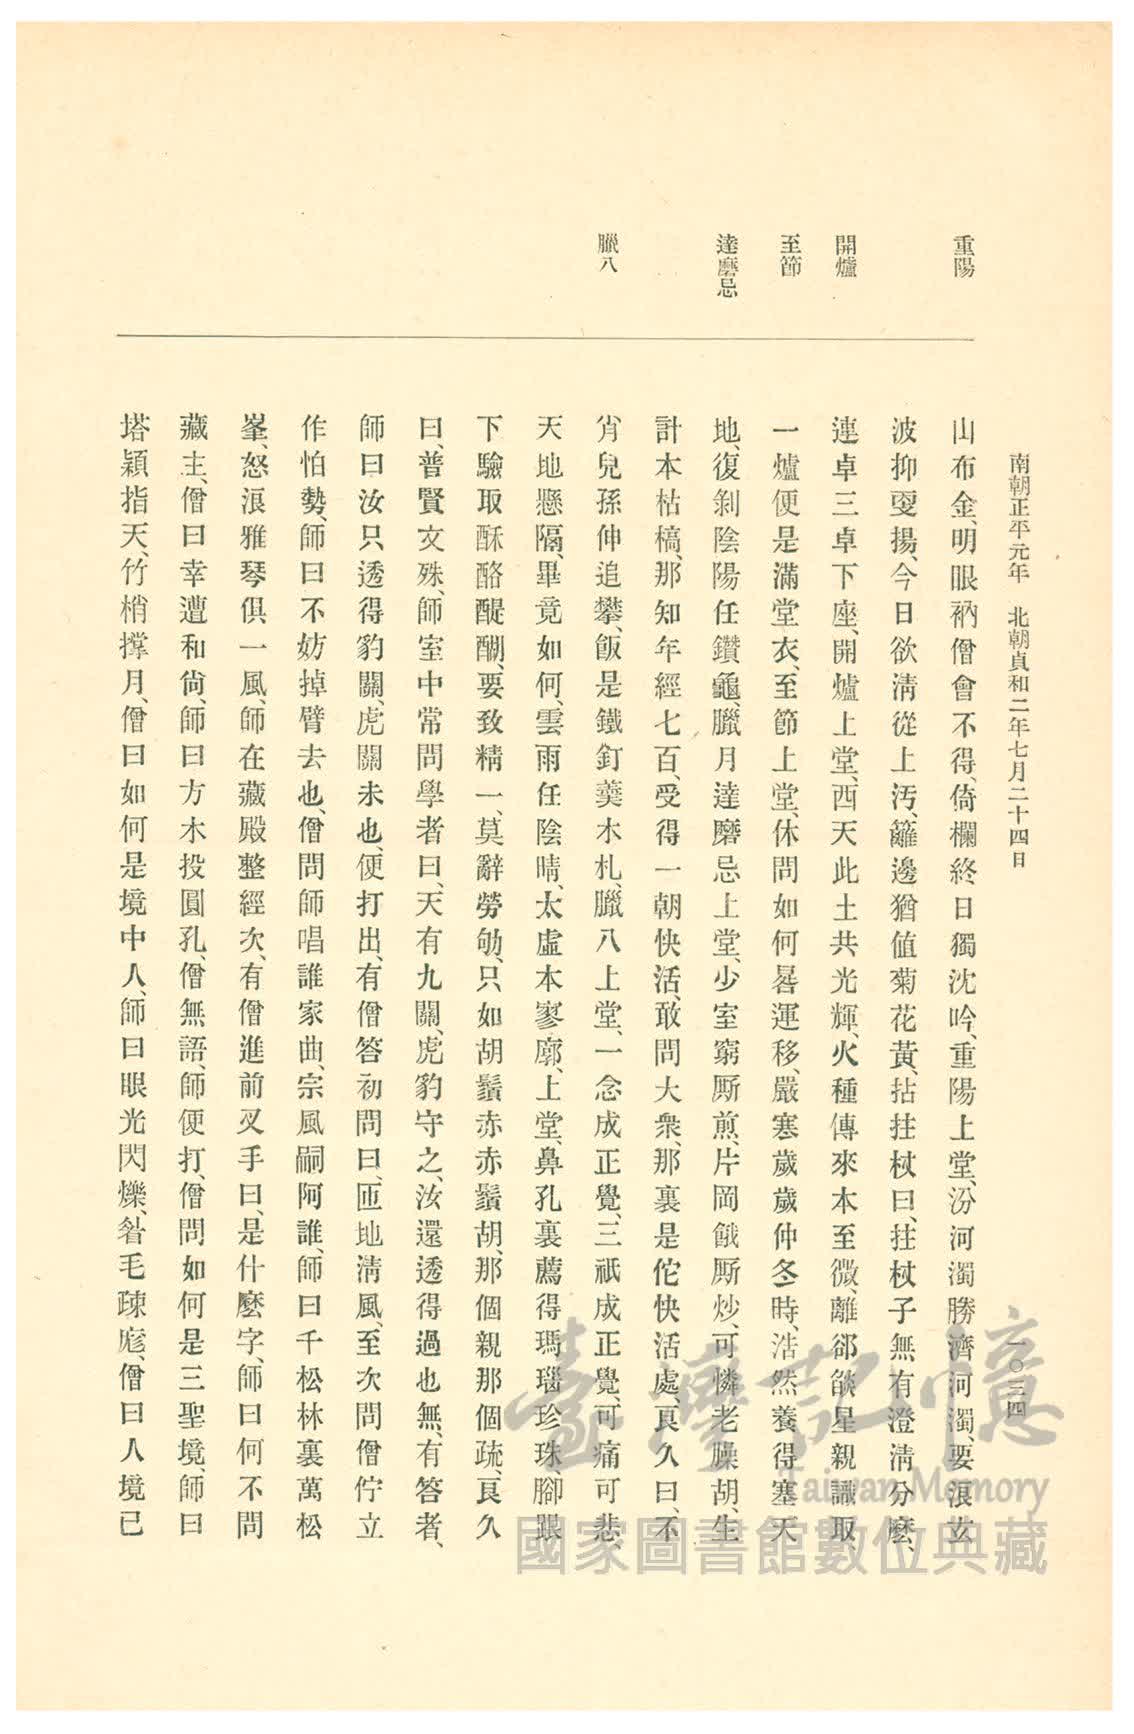 南朝正平元年 北朝貞和二年七月二十四日
一〇三四
重陽
開爐
至節
達磨忌
臘八
山布金、明眼衲僧會不得、倚欄終日獨沈吟、重陽上堂、汾河濁勝濟河濁、要浪玆
波抑更揚、今日欲淸從上汚、籬邊猶値菊花黃、拈拄杖曰、拄杖子無有澄淸分麼、
連卓三卓下座、開爐上堂、西天此土共光輝、火種傳來本至微、離郤燄星親識取、
一爐便是滿堂衣、至節上堂、休問如何晷運移、嚴寒歲歲仲冬時、浩然養得塞天
地、復剝陰陽任鑽龜、臘月達磨忌上堂、少室窮厮煎、片岡餓厮炒、可憐老臊胡、生
計本枯槁、那知年經七百、受得一朝快活、敢問大衆、那裏是佗快活處、良久曰、不
肖兒孫伸追攀、飯是鐵釘羹木札、臘八上堂、一念成正覺、三祇成正覺、可痛可悲、
天地懸隔、畢竟如何、雲雨任陰晴、太虛本寥廓、上堂、鼻孔裏薦得瑪瑙珍珠、腳跟
下驗取酥酪醍醐、要致精一、莫辭勞劬、只如胡鬚赤赤鬚胡、那個親那個疏、良久
曰、普賢文殊、師室中常問學者曰、天有九關、虎豹守之、汝還透得過也無、有答者、
師曰汝只透得豹關、虎關未也、便打出、有僧答初問曰、匝地淸風、至次問僧佇立
作怕勢、師曰不妨掉臂去也、僧問師唱誰家曲、宗風嗣阿誰、師曰千松林裏萬松
峯、怒浪雅琴俱一風、師在藏殿整經次、有僧進前叉手曰、是什麼字、師曰何不問
藏主、僧曰幸遭和尙、師曰方木投圓孔、僧無語、師便打、僧問如何是三聖境、師曰
塔穎指天、竹梢撑月、僧曰如何是境中人、師曰眼光閃爍、眷毛疎厖、僧曰人境已
臺灣記憶
Taiwan Memory
國家圖書館數位典藏